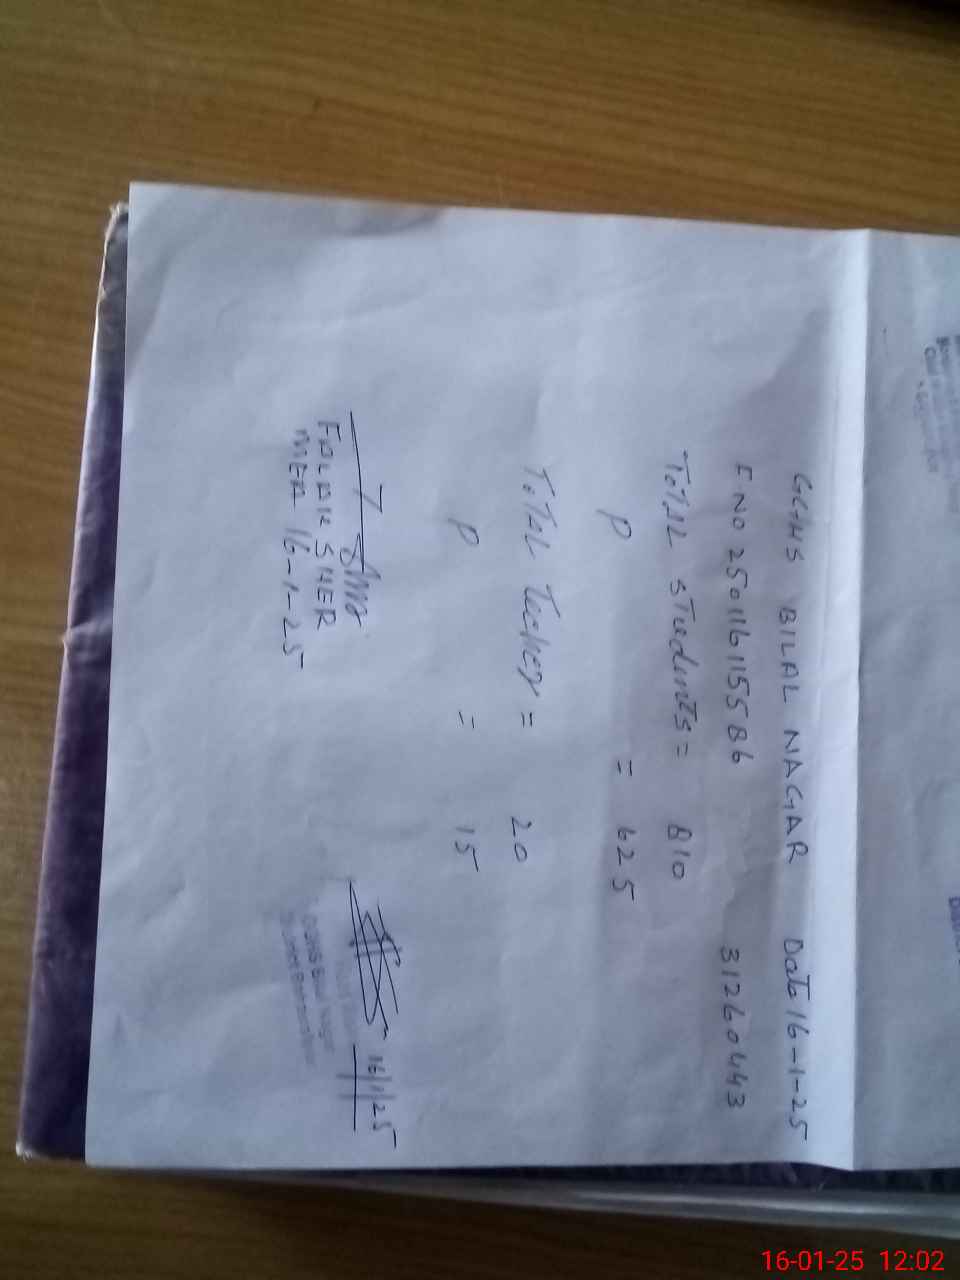 GGHS BILAL NAGAR Date 16-1-25
F NO 250116115586 31260443
TOTAL STUdENTS = 810
P = 625
TOTAL TeCHER = 20
P = 15
16/1/25
FALAK SHER
GGHS Bilal Nagar
MEA 16-1-25
16-01-25 12:02